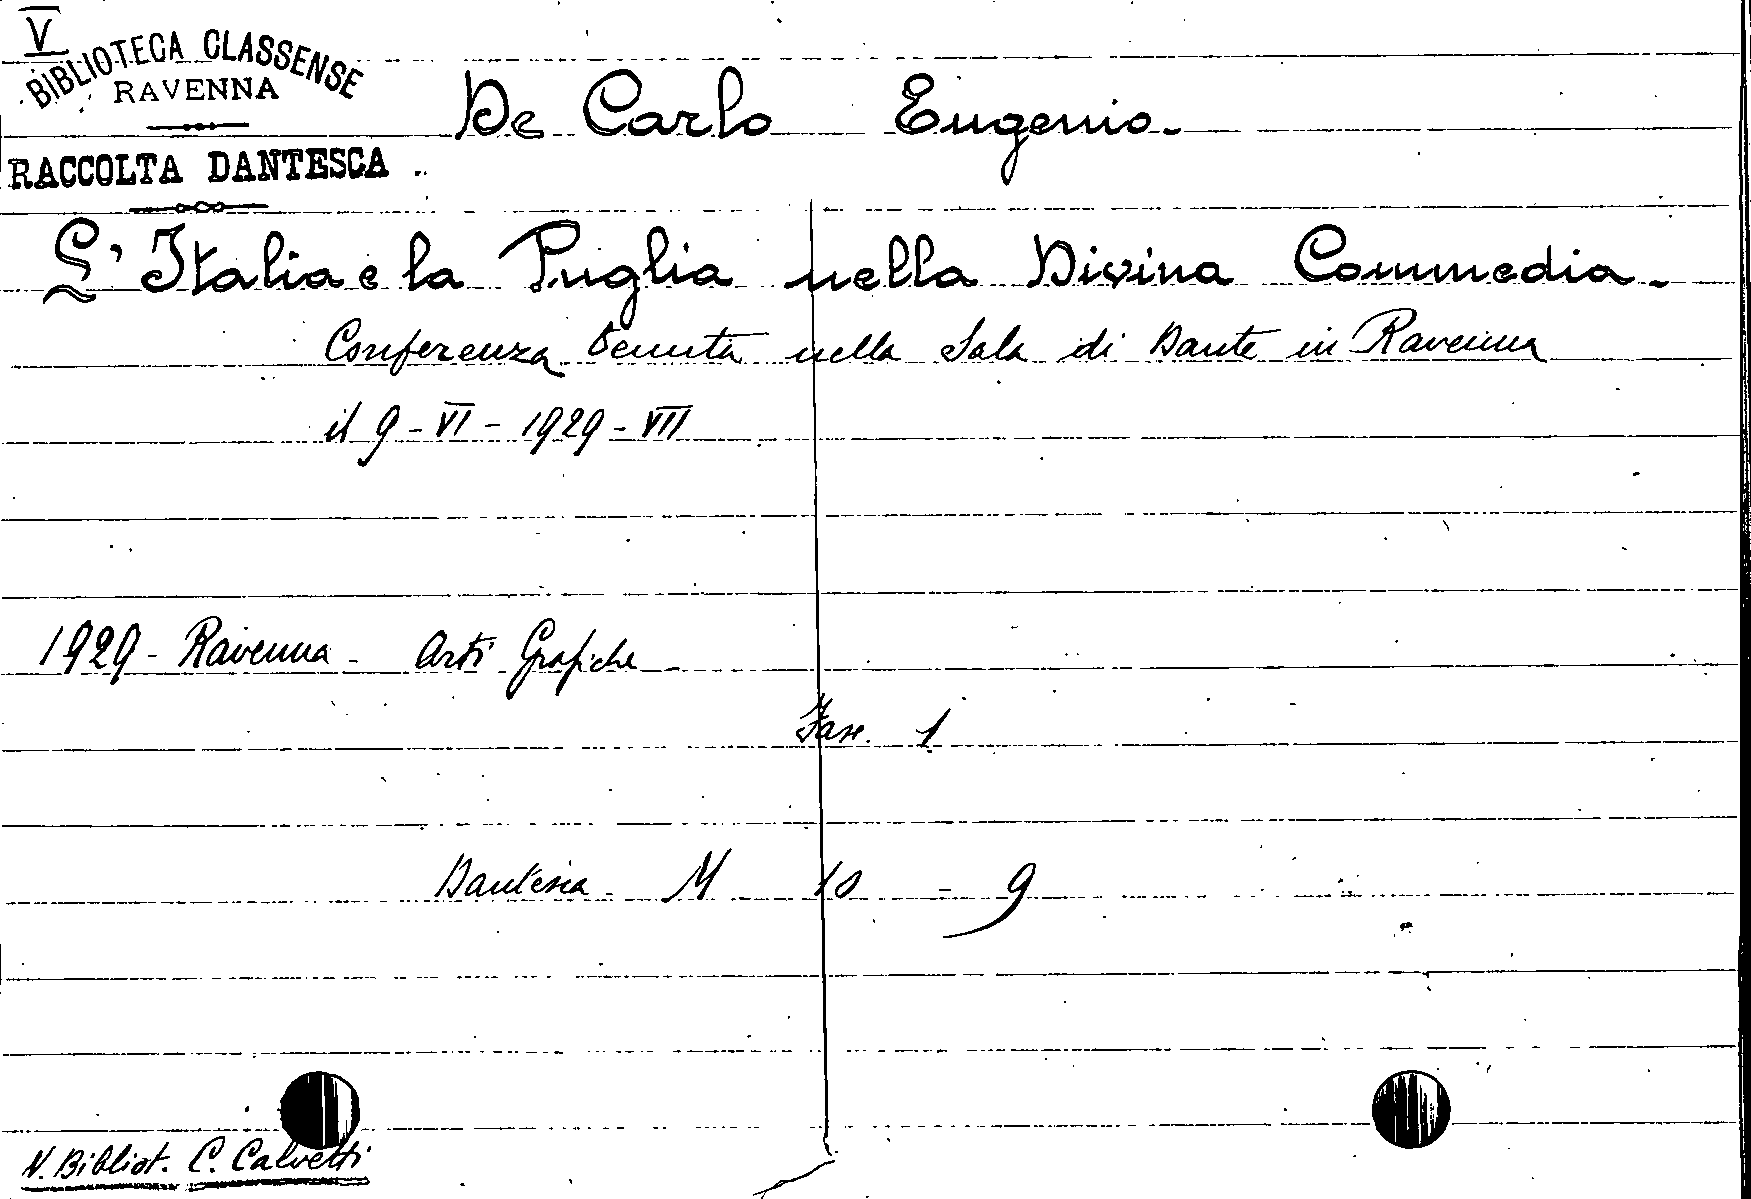 V
BIBLIOTECA CLASSENSE
RAVENNA
De Carlo Eugenio.
RACCOLTA DANTESCA
L'Italia e la Puglia nella Divina Commedia.
Conferenza tenuta nella Sala di Dante in Ravenna
il 9 - VI - 1929 - VII
1929 - Ravenna - Arti Grafiche
Fasc. 1
Dantesca M 10 - 9
N. Bibliot. C. Calvetti